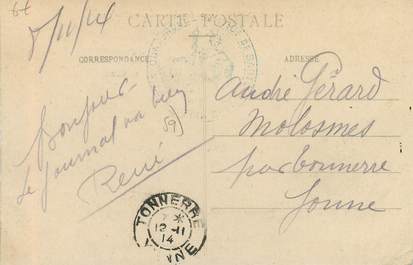 8/11/14
CARTE POSTALE
CORRESPONDANCE
ADRESSE
Bonjour
Le journal va bien
René
André Gérard
Molosmes
par tonnerre
Yonne
TONNERRE
12-11
14
YONNE